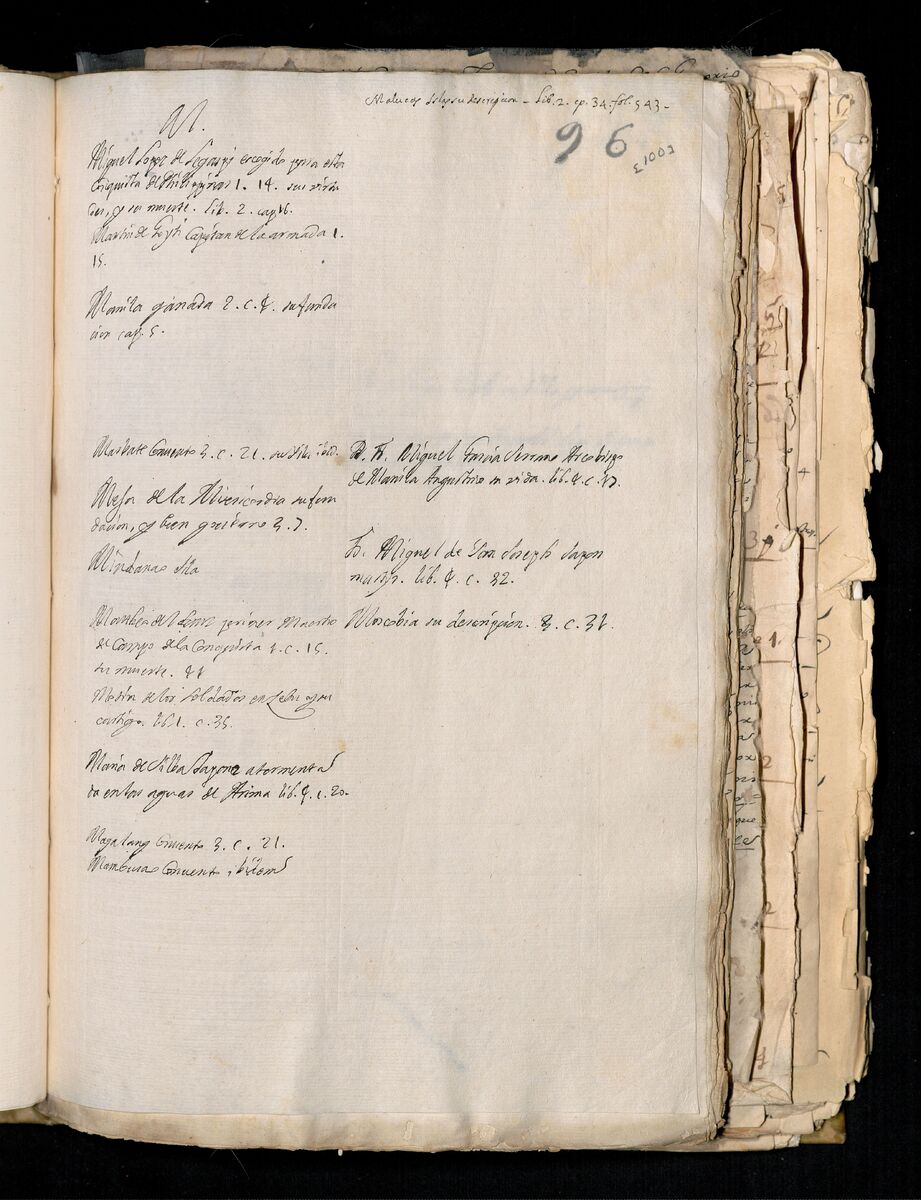 Malucas Islas su descripcion - lib. 2. cp. 34. fol. 543-
96
M.
Miguel Lopez de Legaspi escogido para esta
Conquista de Philippinas 1. 14. sus virtu
des, y su muerte. lib. 2. cap. 16.
Martin de Goyti Capitan de la armada 1.
15.
Manila ganada 2. c. 4. su funda
cion cap. 5.
Masbate Convento 3. c. 21. su sitio ibid.
Mesa de la Misericordia su fun
dacion, y bien 3. 7.
Mindanao Isla
primer Maestro
de Campo de la Conquista 1. c. 15.
su muerte.
Motin de los soldados en Zebu y su
castigo. lib. 1. c. 35.
Maria de Silva Japona atormenta
da en las aguas de Arima lib. 4. c. 20.
Magalang Convento 3. c. 21.
Convento, ibidem
D. F. Miguel Garcia Serrano Arcobispo
de Manila Augustino su vida. lib. 4. c. 17.
F. Miguel de San Joseph Japon
martyr. lib. 4. c. 32.
Moscobia su descripcion. 3. c. 31.